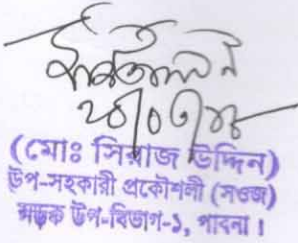 (মোঃ সিরাজ উদ্দিন)
উপ-সহকারী প্রকৌশলী (সওজ)
সড়ক উপ-বিভাগ-১, পাবনা।